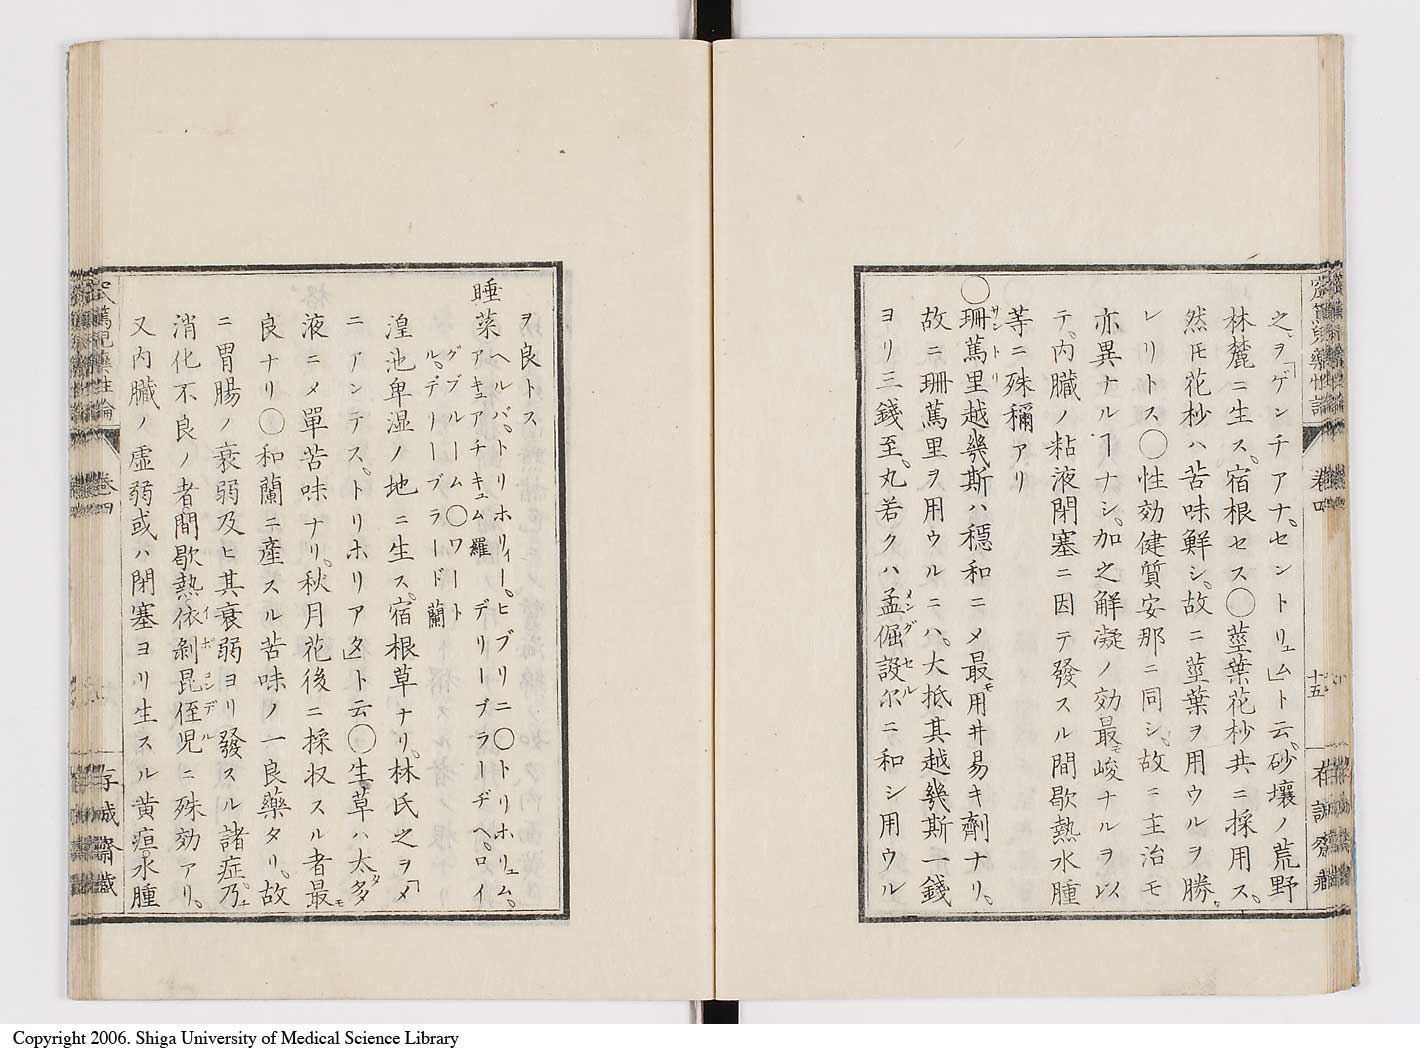 之ヲ「ゲンチアナ。セントリュム」ト云。砂壤ノ荒野
林麓ニ生ス。宿根セス〇莖葉花杪共ニ採用ス。
然𪜈花杪ハ苦味鮮シ。故ニ莖葉ヲ用ウルヲ勝
レリトス〇性効健質安那ニ同シ。故ニ主治モ
亦異ナルヿナシ。加之解凝ノ効最モ峻ナルヲ以
テ。内臓ノ粘液閉塞ニ因テ發スル間歇熱水腫
等ニ殊稱アリ
〇珊篤里越幾斯ハ穏和ニメ最モ用井易キ劑ナリ。
故ニ珊篤里ヲ用ウルニハ。大抵其越幾斯一錢
ヨリ三錢至。丸若クハ孟倔設尓ニ和シ用ウル
卷四
十五
ヲ良トス
睡菜 ヘルバ。トリホリィー。ヒブリニ〇トリホリュム。
アキュアチキュム 羅 デリーブラーヂヘ。ロイ
グブルーム〇ワート
ル。デリーブラード 蘭
湟池卑湿ノ地ニ生ス。宿根草ナリ。林氏之ヲ「メ
ニアンテス。トリホリアタ」ト云〇生草ハ太多
液ニメ單苦味ナリ。秋月花後ニ採収スル者最モ
良ナリ〇和蘭ニ産スル苦味ノ一良藥タリ。故
ニ胃腸ノ衰弱及ヒ其衰弱ヨリ發スル諸症。乃ナ
消化不良ノ者。間歇熱。依剝昆侄児ニ殊効アリ。
又内臓ノ虚弱或ハ閉塞ヨリ生スル黄疸。水腫
卷四
存誠齋藏
Copyright 2006. Shiga University of Medical Science Library